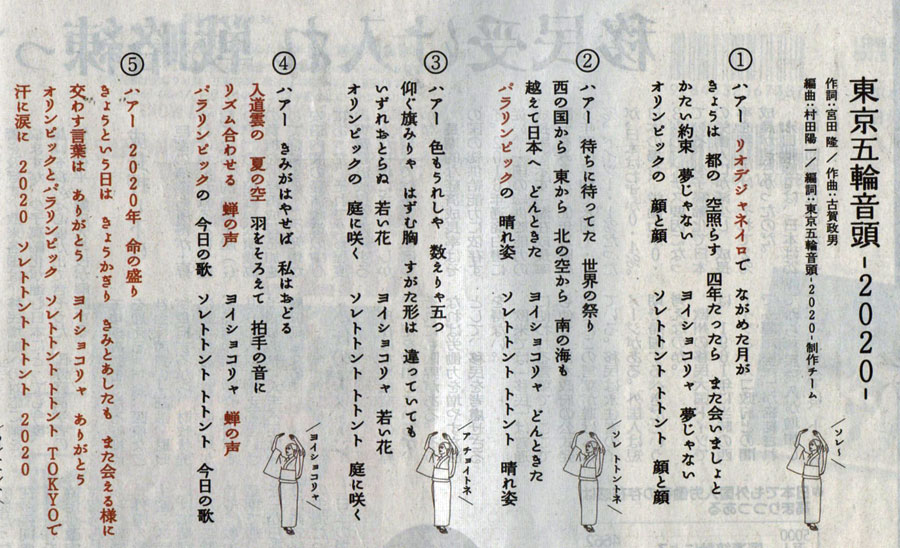 東京五輪音頭-2020-
作詞:宮田 隆/作曲:古賀政男
編曲:村田陽一/編詞:東京五輪音頭-2020-制作チーム
①
ハアー リオデジャネイロで ながめた月が
きょうは 都の 空照らす 四年たったら また会いましょと
かたい約束 夢じゃない ヨイショコリャ 夢じゃない
オリンピックの 顔と顔 ソレトトント トトント 顔と顔
ソレ〜
②
ハアー 待ちに待ってた 世界の祭り
西の国から 東から 北の空から 南の海も
越えて日本へ どんときた ヨイショコリャ どんときた
パラリンピックの 晴れ姿 ソレトトント トトント 晴れ姿
ソレ トトントネ
③
ハアー 色もうれしや 数えりゃ五つ
仰ぐ旗みりゃ はずむ胸 すがた形は 違っていても
いずれおとらぬ 若い花 ヨイショコリャ 若い花
オリンピックの 庭に咲く ソレトトント トトント 庭に咲く
ア チョイトネ
④
ハアー きみがはやせば 私はおどる
入道雲の 夏の空 羽をそろえて 拍手の音に
リズム合わせる 蝉の声 ヨイショコリャ 蝉の声
パラリンピックの 今日の歌 ソレトトント トトント 今日の歌
ヨイショコリャ
⑤
ハアー 2020年 命の盛り
きょうという日は きょうかぎり きみとあしたも また会える様に
交わす言葉は ありがとう ヨイショコリャ ありがとう
オリンピックとパラリンピック ソレトトント トトント TOKYOで
汗に涙に 2020 ソレトトント トトント 2020